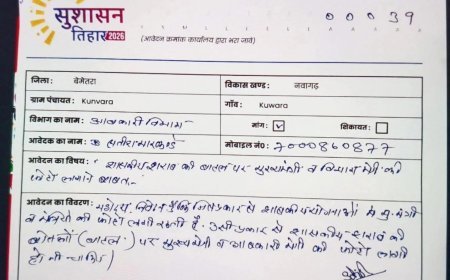 सुशासन
तिहार 2026
00039
(आवेदन क्रमांक कार्यालय द्वारा भरा जावे)
जिला: बेमेतरा विकास खण्ड: नवागढ़
ग्राम पंचायत: Kunvara गाँव: Kuwara
विभाग का नाम: आबकारी विभाग मांग: ✓ शिकायत:
आवेदक का नाम: मोबाइल नं0: 7000860877
आवेदन का विषय: शासकीय शराब की बाटल पर मुख्यमंत्री व विभाग मंत्री की
फोटो लगाने बाबत।
आवेदन का विवरण: महोदय, निवेदन है कि जिस प्रकार से शासकीय योजनाओं में मु. मंत्री
व मंत्रियों की फोटो लगी रहती है. उसी प्रकार से शासकीय शराब की
बोतलों (बाटल) पर मुख्यमंत्री व आबकारी मंत्री की फोटो लगानी